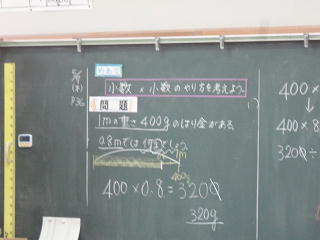 5/8
(木)
P36
めあて
小数×小数のやり方を考えよう。
問題
1mの重さ400gのはり金がある
0.8mでは何gでしょう。
m
400g
400×0.8=3200
320g
400×
↓
400×8
320÷